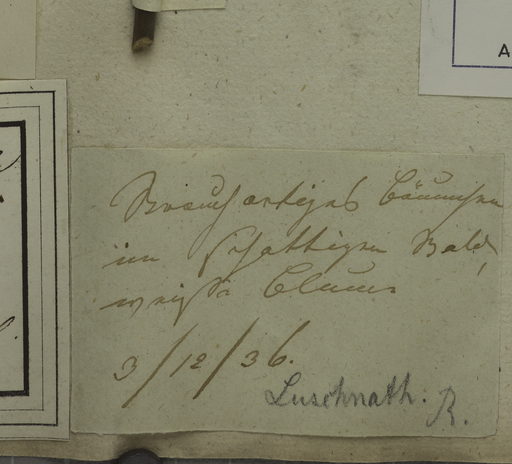 Strauchartiges Bäumchen
im schattigen Wald,
weisse Blum.
3/12/36.
Luschnath.
R.
A